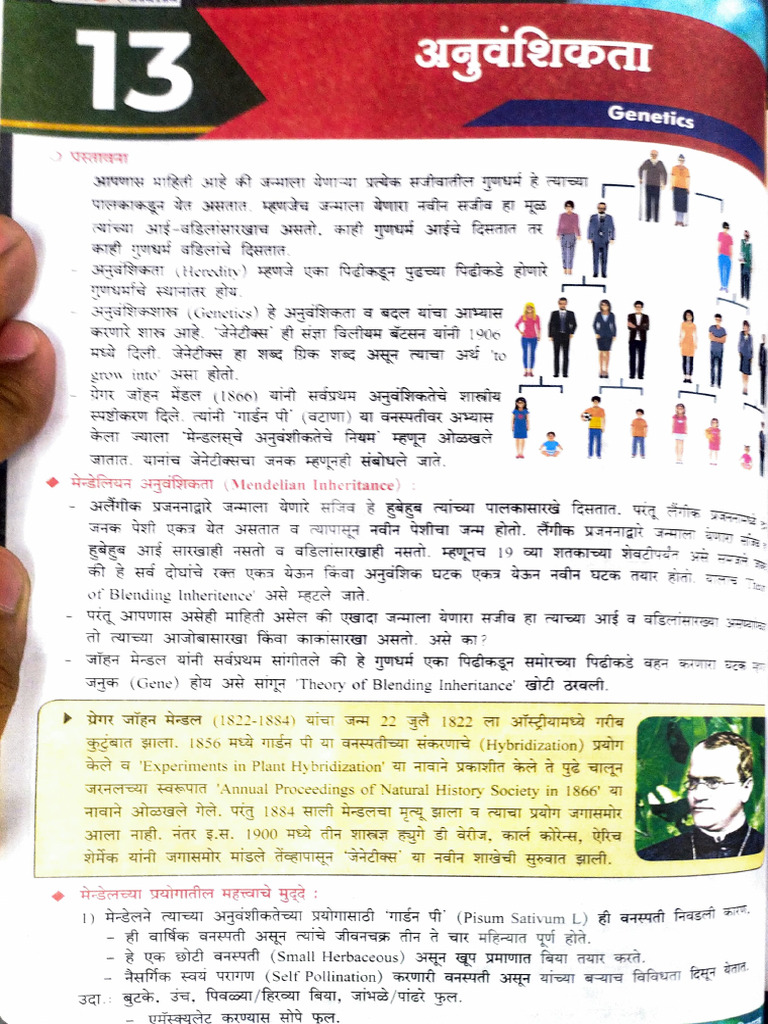 13
अनुवंशिकता
Genetics
प्रस्तावना
आपणास माहिती आहे की जन्माला येणाऱ्या प्रत्येक सजीवातील गुणधर्म हे त्याच्या
पालकाकडून येत असतात. म्हणजेच जन्माला येणारा नवीन सजीव हा मूळ
त्यांच्या आई-वडिलांसारखाच असतो. काही गुणधर्म आईचे दिसतात तर
काही गुणधर्म वडिलांचे दिसतात.
- अनुवंशिकता (Heredity) म्हणजे एका पिढीकडून पुढच्या पिढीकडे होणारे
गुणधर्माचे स्थानांतर होय.
- अनुवंशिकशास्त्र (Genetics) हे अनुवंशिकता व बदल यांचा आभ्यास
करणारे शास्त्र आहे. 'जेनेटीक्स' ही संज्ञा विलीयम बॅटसन यांनी 1906
मध्ये दिली. जेनेटीक्स हा शब्द ग्रिक शब्द असून त्याचा अर्थ 'to
grow into' असा होतो.
- ग्रेगर जॉहन मेंडल (1866) यांनी सर्वप्रथम अनुवंशिकतेचे शास्त्रीय
स्पष्टीकरण दिले. त्यांनी 'गार्डन पी' (वटाणा) या वनस्पतीवर अभ्यास
केला ज्याला 'मेन्डलस्चे अनुवंशीकतेचे नियम' म्हणून ओळखले
जातात. यानांच जेनेटीक्सचा जनक म्हणूनही संबोधले जाते.
◆ मेन्डेलियन अनुवंशिकता (Mendelian Inheritance) :
- अलैंगीक प्रजननाद्वारे जन्माला येणारे सजिव हे हुबेहुब त्यांच्या पालकासारखे दिसतात. परंतू लैंगीक प्रजननामध्ये
जनक पेशी एकत्र येत असतात व त्यापासून नवीन पेशीचा जन्म होतो. लैंगीक प्रजननाद्वारे जन्माला येणारा सजिव
हुबेहुब आई सारखाही नसतो व वडिलांसारखाही नसतो. म्हणूनच 19 व्या शतकाच्या शेवटीपर्यंत असे समजले
की हे सर्व दोघांचे रक्त एकत्र येऊन किंवा अनुवंशिक घटक एकत्र येऊन नवीन घटक तयार होतो. यालाच
of Blending Inheritence' असे म्हटले जाते.
- परंतू आपणास असेही माहिती असेल की एखादा जन्माला येणारा सजीव हा त्याच्या आई व वडिलांसारख्या
तो त्याच्या आजोबासारखा किंवा काकांसारखा असतो. असे का?
- जॉहन मेन्डल यांनी सर्वप्रथम सांगीतले की हे गुणधर्म एका पिढीकडून समोरच्या पिढीकडे वहन करणारा घटक
जनुक (Gene) होय असे सांगून 'Theory of Blending Inheritance' खोटी ठरवली.
▶ ग्रेगर जॉहन मेन्डल (1822-1884) यांचा जन्म 22 जुलै 1822 ला ऑस्ट्रीयामध्ये गरीब
कुटुंबात झाला. 1856 मध्ये गार्डन पी या वनस्पतीच्या संकरणाचे (Hybridization) प्रयोग
केले व 'Experiments in Plant Hybridization' या नावाने प्रकाशीत केले ते पुढे चालून
जरनलच्या स्वरूपात 'Annual Proceedings of Natural History Society in 1866' या
नावाने ओळखले गेले. परंतु 1884 साली मेन्डलचा मृत्यू झाला व त्याचा प्रयोग जगासमोर
आला नाही. नंतर इ.स. 1900 मध्ये तीन शास्त्रज्ञ ह्युगे डी वेरीज, कार्ल कोरेन्स, ऐरिच
शेर्मेक यांनी जगासमोर मांडले तेंव्हापासून 'जेनेटीक्स' या नवीन शाखेची सुरुवात झाली.
◆ मेन्डेलच्या प्रयोगातील महत्त्वाचे मुद्दे :
1) मेन्डेलने त्याच्या अनुवंशीकतेच्या प्रयोगासाठी 'गार्डन पी' (Pisum Sativum L) ही वनस्पती निवडली कारण.
- ही वार्षिक वनस्पती असून त्यांचे जीवनचक्र तीन ते चार महिन्यात पूर्ण होते.
- हे एक छोटी वनस्पती (Small Herbaceous) असून खूप प्रमाणात बिया तयार करते.
- नैसर्गिक स्वयं परागण (Self Pollination) करणारी वनस्पती असून यांच्या बऱ्याच विविधता दिसून येतात.
उदा.: बुटके, उंच, पिवळ्या/हिरव्या बिया, जांभळे/पांढरे फुल.
- एमॅस्क्युलेट करण्यास सोपे फुल.